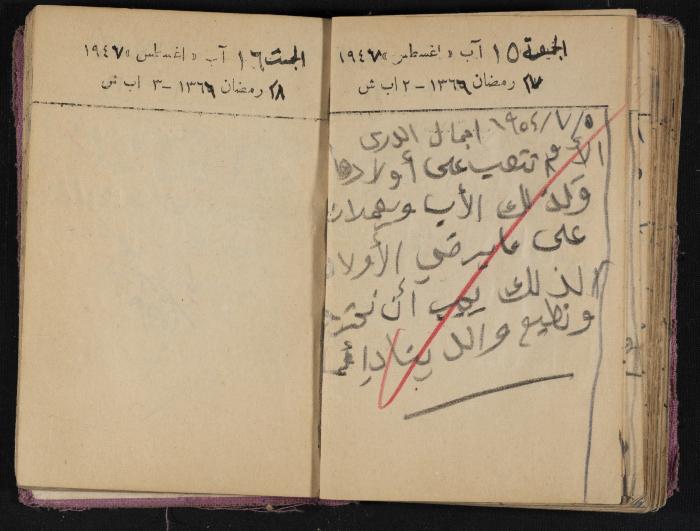 الجمعة ١٥ آب « اغسطس » ١٩٤٧
٢٧ رمضان ١٣٦٦ - ٢ اب ش
١٩٥٤/٧/٥ اجمال الدرس
الأم تتعب على أولادها
وكذلك الأب ويعملان
على ما يرضي الأولاد
لذلك يجب أن نحترم
ونطيع والدينا دائما
السبت ١٦ آب « اغسطس » ١٩٤٧
٢٨ رمضان ١٣٦٦ - ٣ اب ش